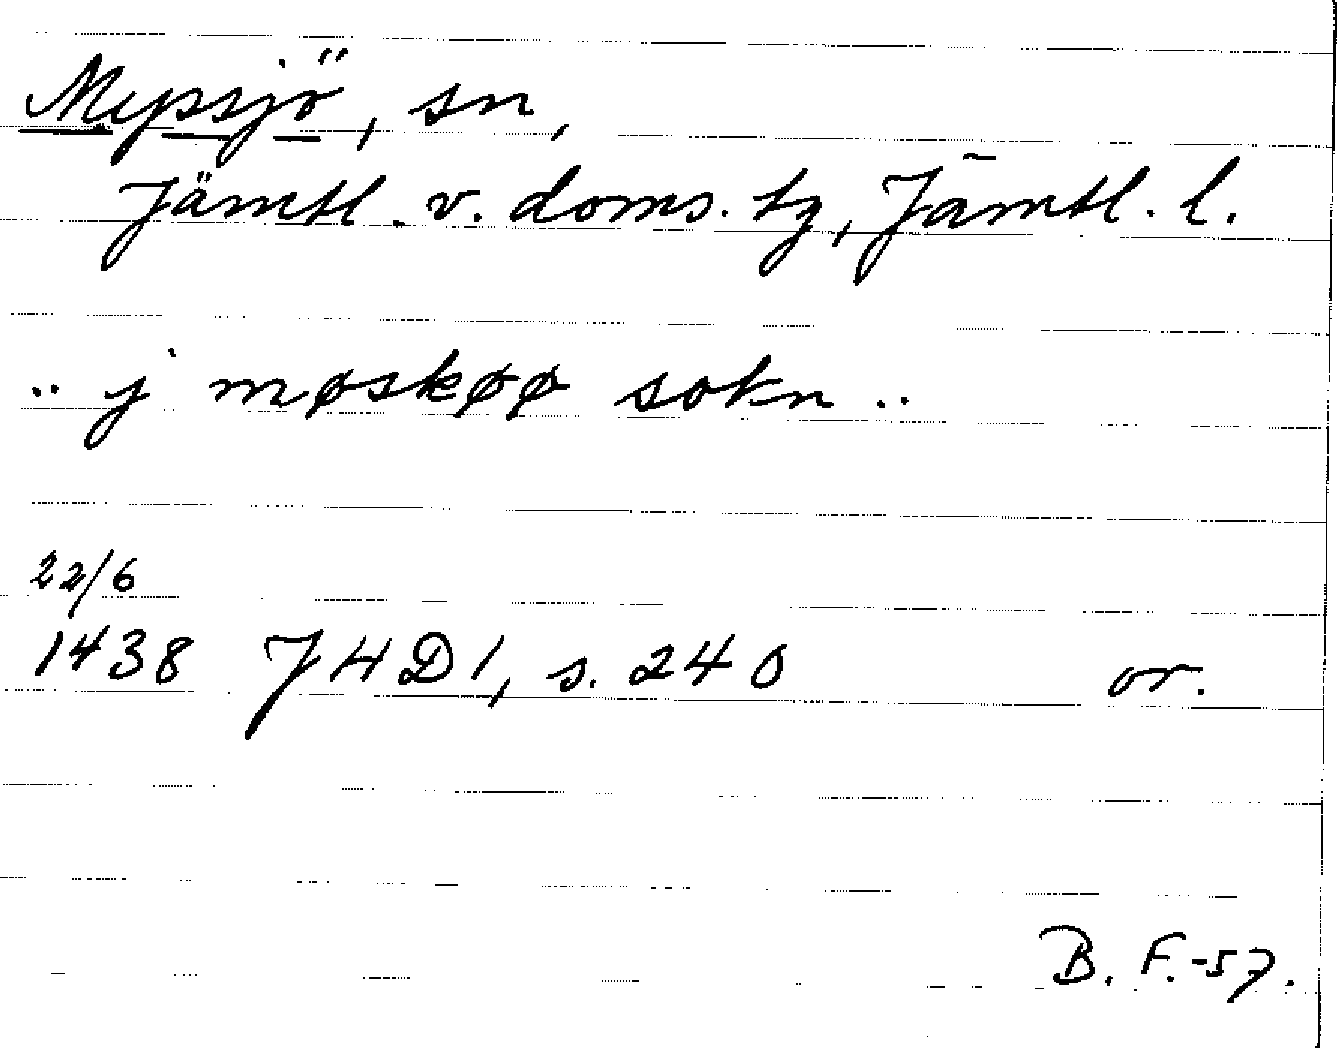 Mypsjö, sn,
Jämtl. v. doms. tg, Jämtl. l.
.. j møskøø sokn ..
22/6
1438 JHD1, s. 240 or.
B. F. -57.